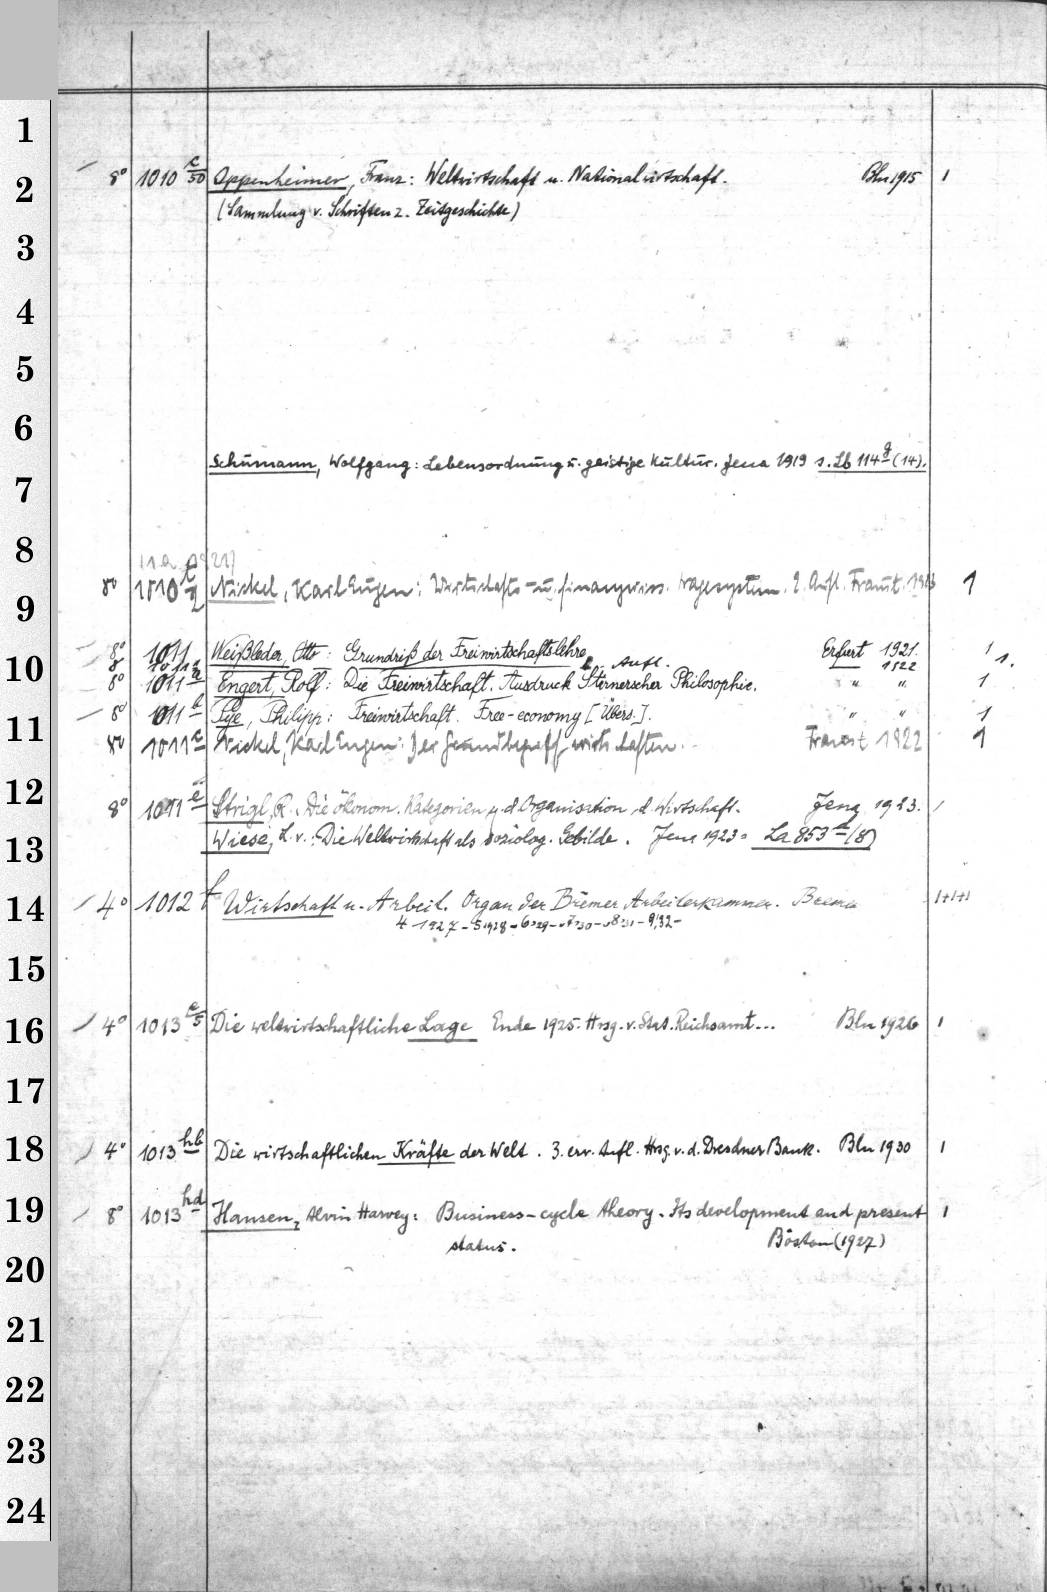 1
8° 1010 e/50 Oppenheimer, Franz: Weltwirtschaft u. Nationalwirtschaft. Bln 1915 1
2
(Sammlung v. Schriften z. Zeitgeschichte)
3
4
5
6
Schumann, Wolfgang: Lebensordnung u. geistige Kultur. Jena 1919 s. Lb 114 g (14).
7
8
8° 1010 Nickel, Karl Eugen: Wirtschafts- u. finanzwiss. 2. Aufl. 1
9
8° 1011 Weißleder, Otto: Grundriß der Freiwirtschaftslehre Erfurt 1921. 1
8° 1011a Aufl. 1922 1.
10
8° 1011 a Engert, Rolf: Die Freiwirtschaft. Ausdruck Stirnerscher Philosophie. " " 1
8° 1011 b Pye, Philipp: Freiwirtschaft. Free-economy [Übers.]. " " 1
11
8° 1011 c Nickel, Karl Eugen: Der Grundbegriff wirtschaften. 1922 1
12
8° 1011 e Strigl, R. Die ökonom. Kategorien u. d. Organisation d. Wirtschaft. Jena 1923. 1
Wiese, L. v.: Die Weltwirtschaft als soziolog. Gebilde. Jena 1923 = La 853 (8)
13
14
4° 1012 f Wirtschaft u. Arbeit. Organ der Bremer Arbeiterkammer. Bremen 1+1+1
4 1927 - 5 1928 - 6 29 - 7 30 - 8 31 - 9, 32 -
15
16
4° 1013 e/5 Die weltwirtschaftliche Lage Ende 1925. Hrsg. v. Stat. Reichsamt... Bln 1926 1
17
18
4° 1013 hb Die wirtschaftlichen Kräfte der Welt. 3. erw. Aufl. Hrsg. v. d. Dresdner Bank. Bln 1930 1
19
8° 1013 hd Hansen, Alvin Harvey: Business-cycle theory. Its development and present 1
status. Boston (1927)
20
21
22
23
24